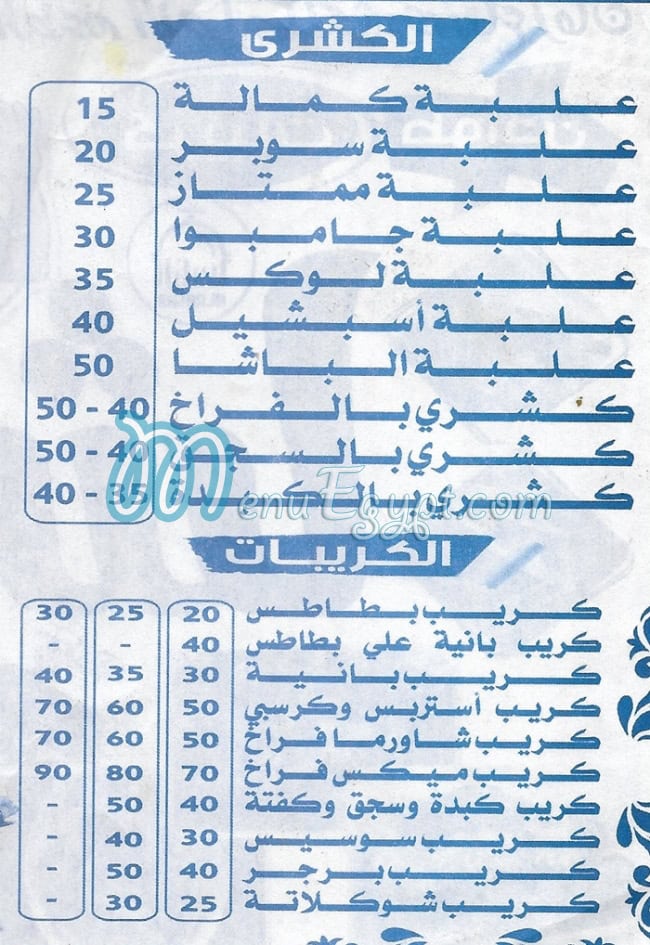 الكشرى
علبة كمالة 15
علبة سوبر 20
علبة ممتاز 25
علبة جامبوا 30
علبة لوكس 35
علبة أسبشيل 40
علبة الباشا 50
كشري بالفراخ 40 - 50
كشري بالسجق 40 - 50
كشري بالكبدة 35 - 40
MenuEgypt.com
الكريبات
كريب بطاطس 20 25 30
كريب بانية علي بطاطس 40 - -
كريب بانية 30 35 40
كريب أستربس وكرسبي 50 60 70
كريب شاورما فراخ 50 60 70
كريب ميكس فراخ 70 80 90
كريب كبدة وسجق وكفتة 40 50 -
كريب سوسيس 30 40 -
كريب برجر 40 50 -
كريب شوكلاتة 25 30 -